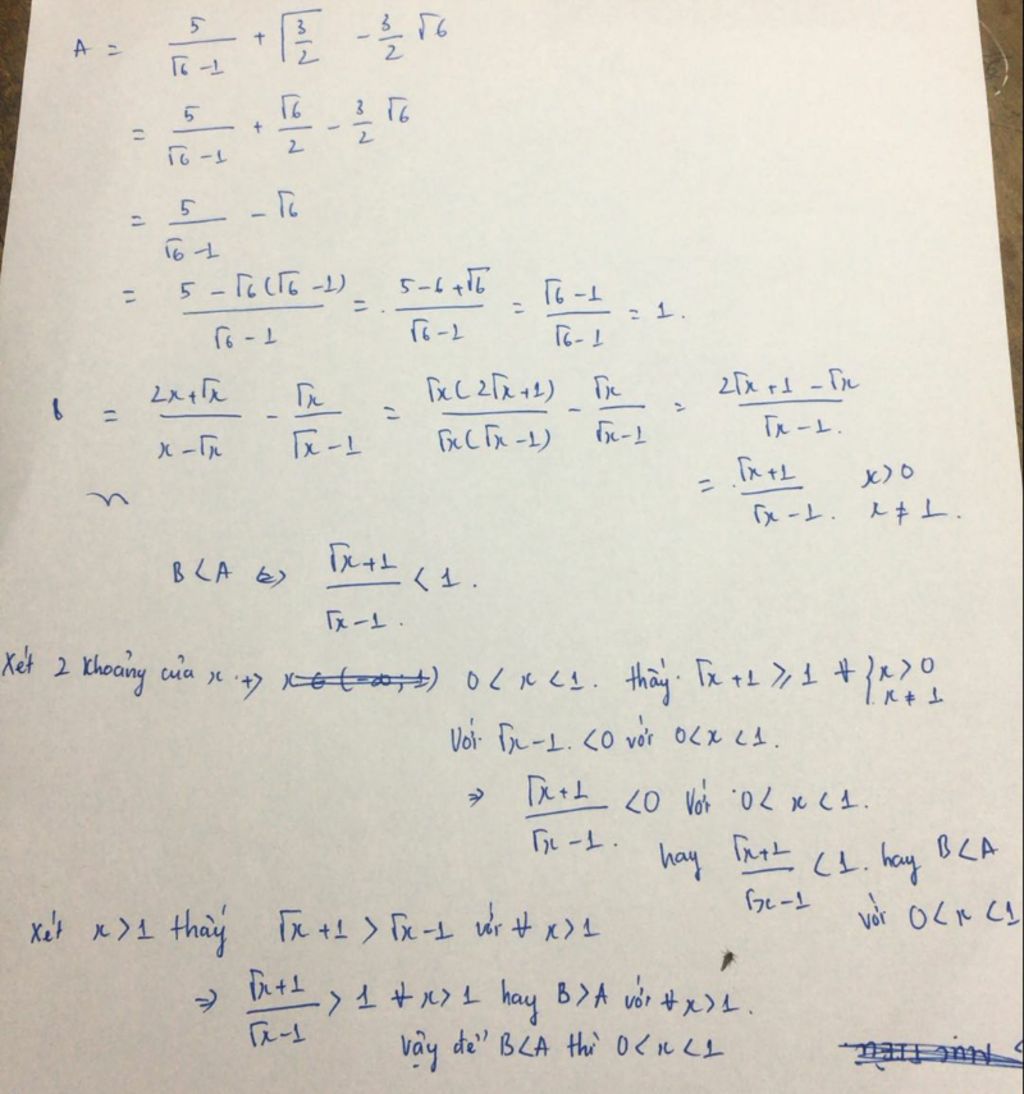 A = 5/(√6 - 1) + √(3/2) - 3/2 √6
= 5/(√6 - 1) + √6/2 - 3/2 √6
= 5/(√6 - 1) - √6
= (5 - √6(√6 - 1))/(√6 - 1) = (5 - 6 + √6)/(√6 - 1) = (√6 - 1)/(√6 - 1) = 1.
B = (2x + √x)/(x - √x) - √x/(√x - 1) = √x(2√x + 1)/(√x(√x - 1)) - √x/(√x - 1) = (2√x + 1 - √x)/(√x - 1).
= (√x + 1)/(√x - 1). x > 0 x ≠ 1.
B < A ⇔ (√x + 1)/(√x - 1) < 1.
Xét 2 khoảng của x. +) x ∈ (-∞; 1) 0 < x < 1. thấy √x + 1 ⩾ 1 ∀ { x > 0 x ≠ 1
Với √x - 1 < 0 với 0 < x < 1.
⇒ (√x + 1)/(√x - 1) < 0 Với 0 < x < 1.
hay (√x + 1)/(√x - 1) < 1. hay B < A
với 0 < x < 1
Xét x > 1 thấy √x + 1 > √x - 1 với ∀ x > 1
⇒ (√x + 1)/(√x - 1) > 1 ∀ x > 1 hay B > A với ∀ x > 1.
Vậy để B < A thì 0 < x < 1